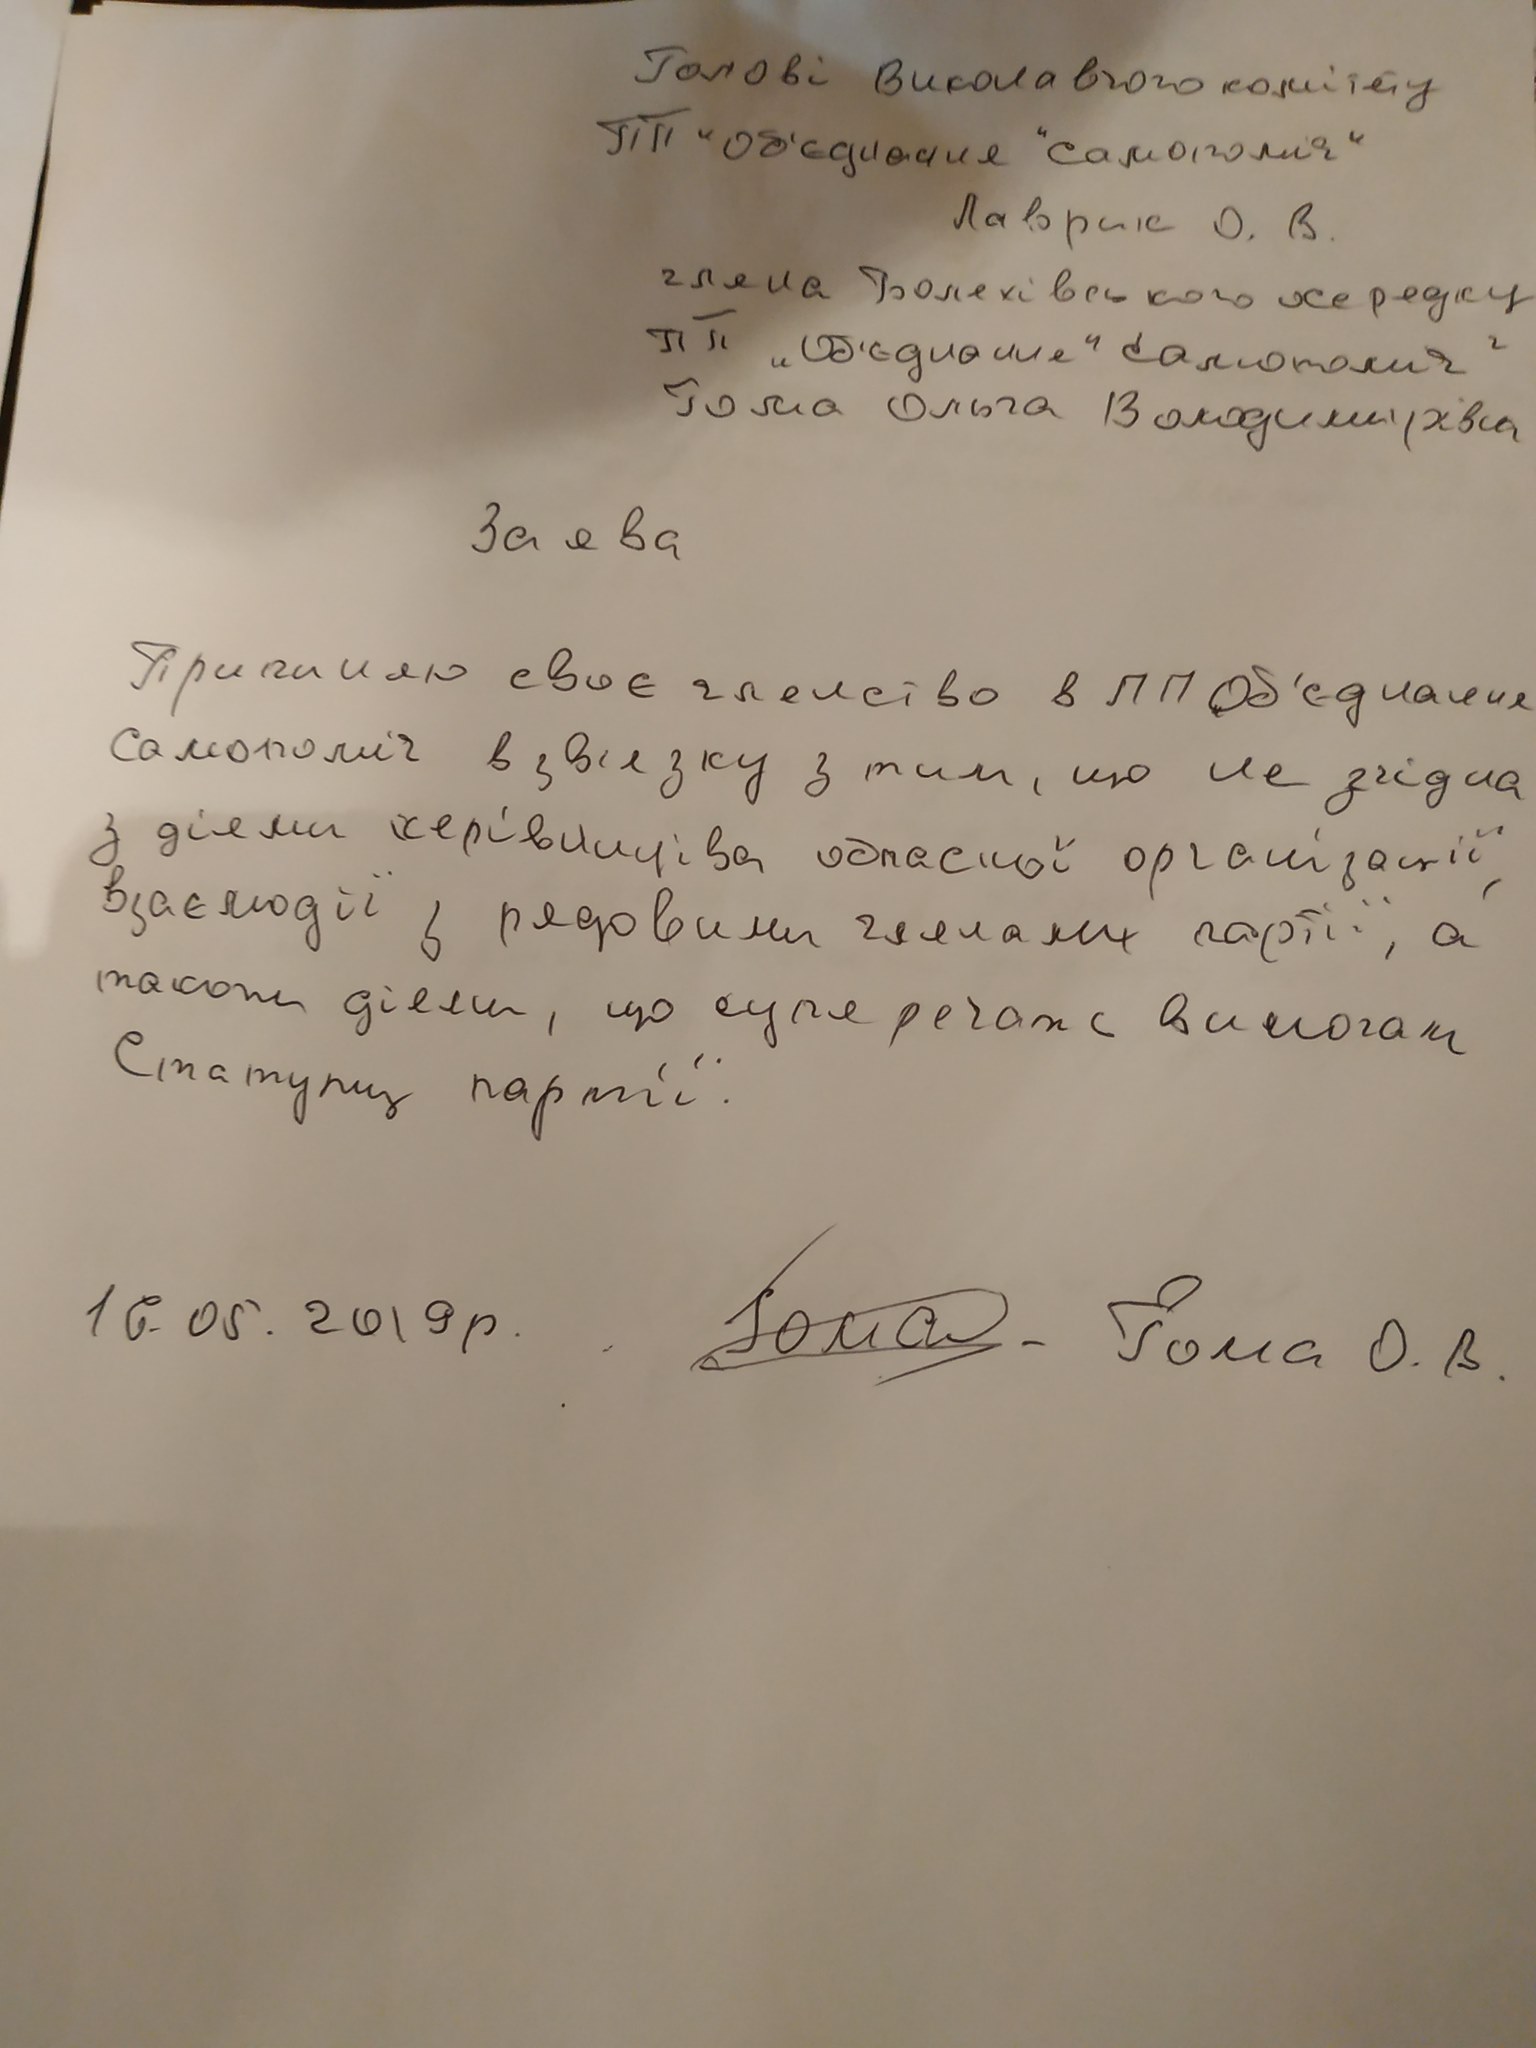 Голові Виконавчого комітету
ПП "Об'єднання "Самопоміч"
Лаврик О. В.
члена Болехівського осередку
ПП „Об'єднання" Самопоміч"
Гома Ольга Володимирівна
Заява
Припиняю своє членство в ПП Об'єднання
Самопоміч в звязку з тим, що не згідна
з діями керівництва обласної організації,
взаємодії з рядовими членами партії, а
також діями, що супе речать вимогам
Статуту партії.
16.05.2019р. Гома - Гома О. В.